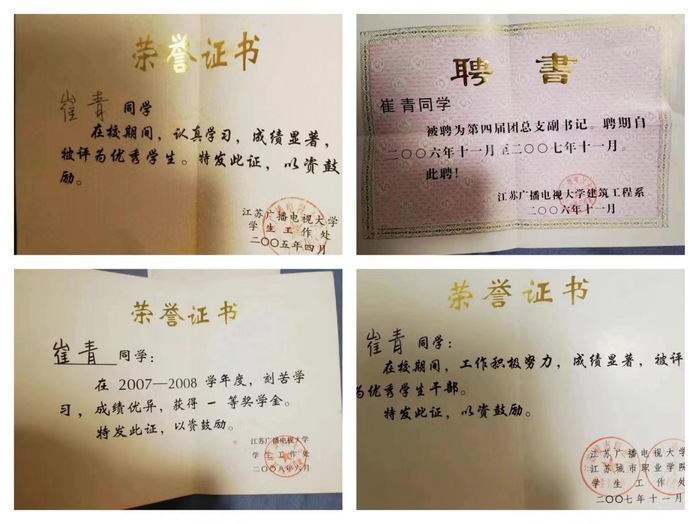 荣誉证书
崔青 同学
在校期间，认真学习，成绩显著，
被评为优秀学生。特发此证，以资鼓
励。
江苏广播电视大学
学生工作处
二〇〇五年四月
聘書
崔青同学
被聘为第四届团总支副书记。聘期自
二〇〇六年十一月至二〇〇七年十一月。
此聘！
江苏广播电视大学建筑工程系
二〇〇六年十一月
荣誉证书
崔青 同学：
在 2007—2008 学年度，刻苦学
习，成绩优异，获得 一 等奖学金。
特发此证，以资鼓励。
江苏广播电视大学
学生工作处
二〇〇八年六月
荣誉证书
崔青 同学：
在校期间，工作积极努力，成绩显著，被评
为优秀学生干部。
特发此证，以资鼓励。
江苏广播电视大学
江苏城市职业学院
学生工作处
二〇〇七年十一月